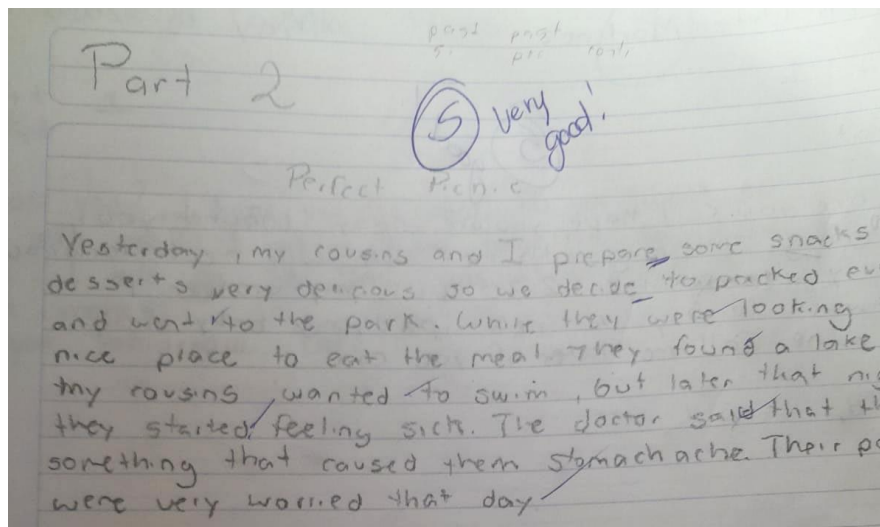 past past
Part 2
5 very good!
Perfect Picnic
Yesterday, my cousins and I prepare some snacks
desserts very delicious so we decide to packed
and went to the park. While they were looking
nice place to eat the meal they found a lake
my cousins wanted to swim, but later that
they started feeling sick. The doctor said that
something that caused them stomachache. Their
were very worried that day